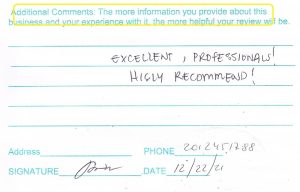 Additional Comments: The more information you provide about this
business and your experience with it, the more helpful your review will be.
EXCELLENT, PROFESSIONALS!
HIGLY RECOMMEND!
Address PHONE 2012451788
SIGNATURE DATE 12/22/21